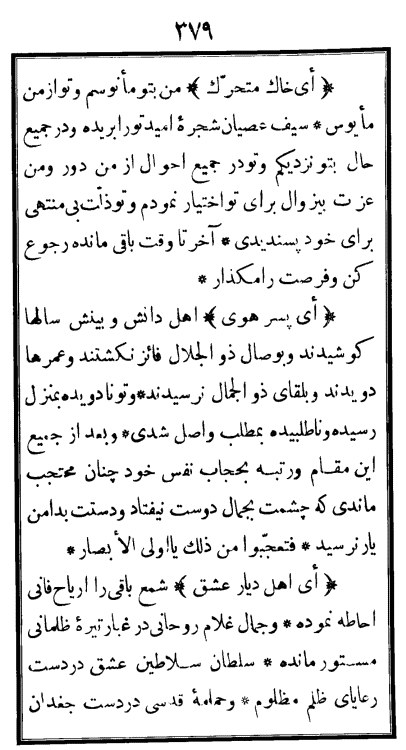 ٣٧٩
﴿ أی خاك متحرّك ﴾ من بتو مأنوسم و تو از من
مأیوس * سیف عصیان شجرهٔ امید تورا بریده و در جمیع
حال بتو نزدیکم و تو در جمیع احوال از من دور و من
عزت بیزوال برای تو اختیار نمودم و تو ذلّت بی‌منتهی
برای خود پسندیدی * آخر تا وقت باقی مانده رجوع
کن و فرصت را مگذار *
﴿ أی پسر هوی ﴾ اهل دانش و بینش سالها
کوشیدند و بوصال ذو الجلال فائز نگشتند و عمرها
دویدند و بلقای ذو الجمال نرسیدند * و تو نادویده بمنزل
رسیده و ناطلبیده بمطلب واصل شدی * و بعد از جمیع
این مقام و رتبه بحجاب نفس خود چنان محتجب
ماندی که چشمت بجمال دوست نیفتاد و دستت بدامن
یار نرسید * فتعجّبوا من ذلك یا اولی الأبصار *
﴿ أی اهل دیار عشق ﴾ شمع باقی را اریاح فانی
احاطه نموده * و جمال غلام روحانی در غبار تیرهٔ ظلمانی
مستور مانده * سلطان سلاطین عشق در دست
رعایای ظلم مظلوم * و حمامهٔ قدسی در دست جغدان